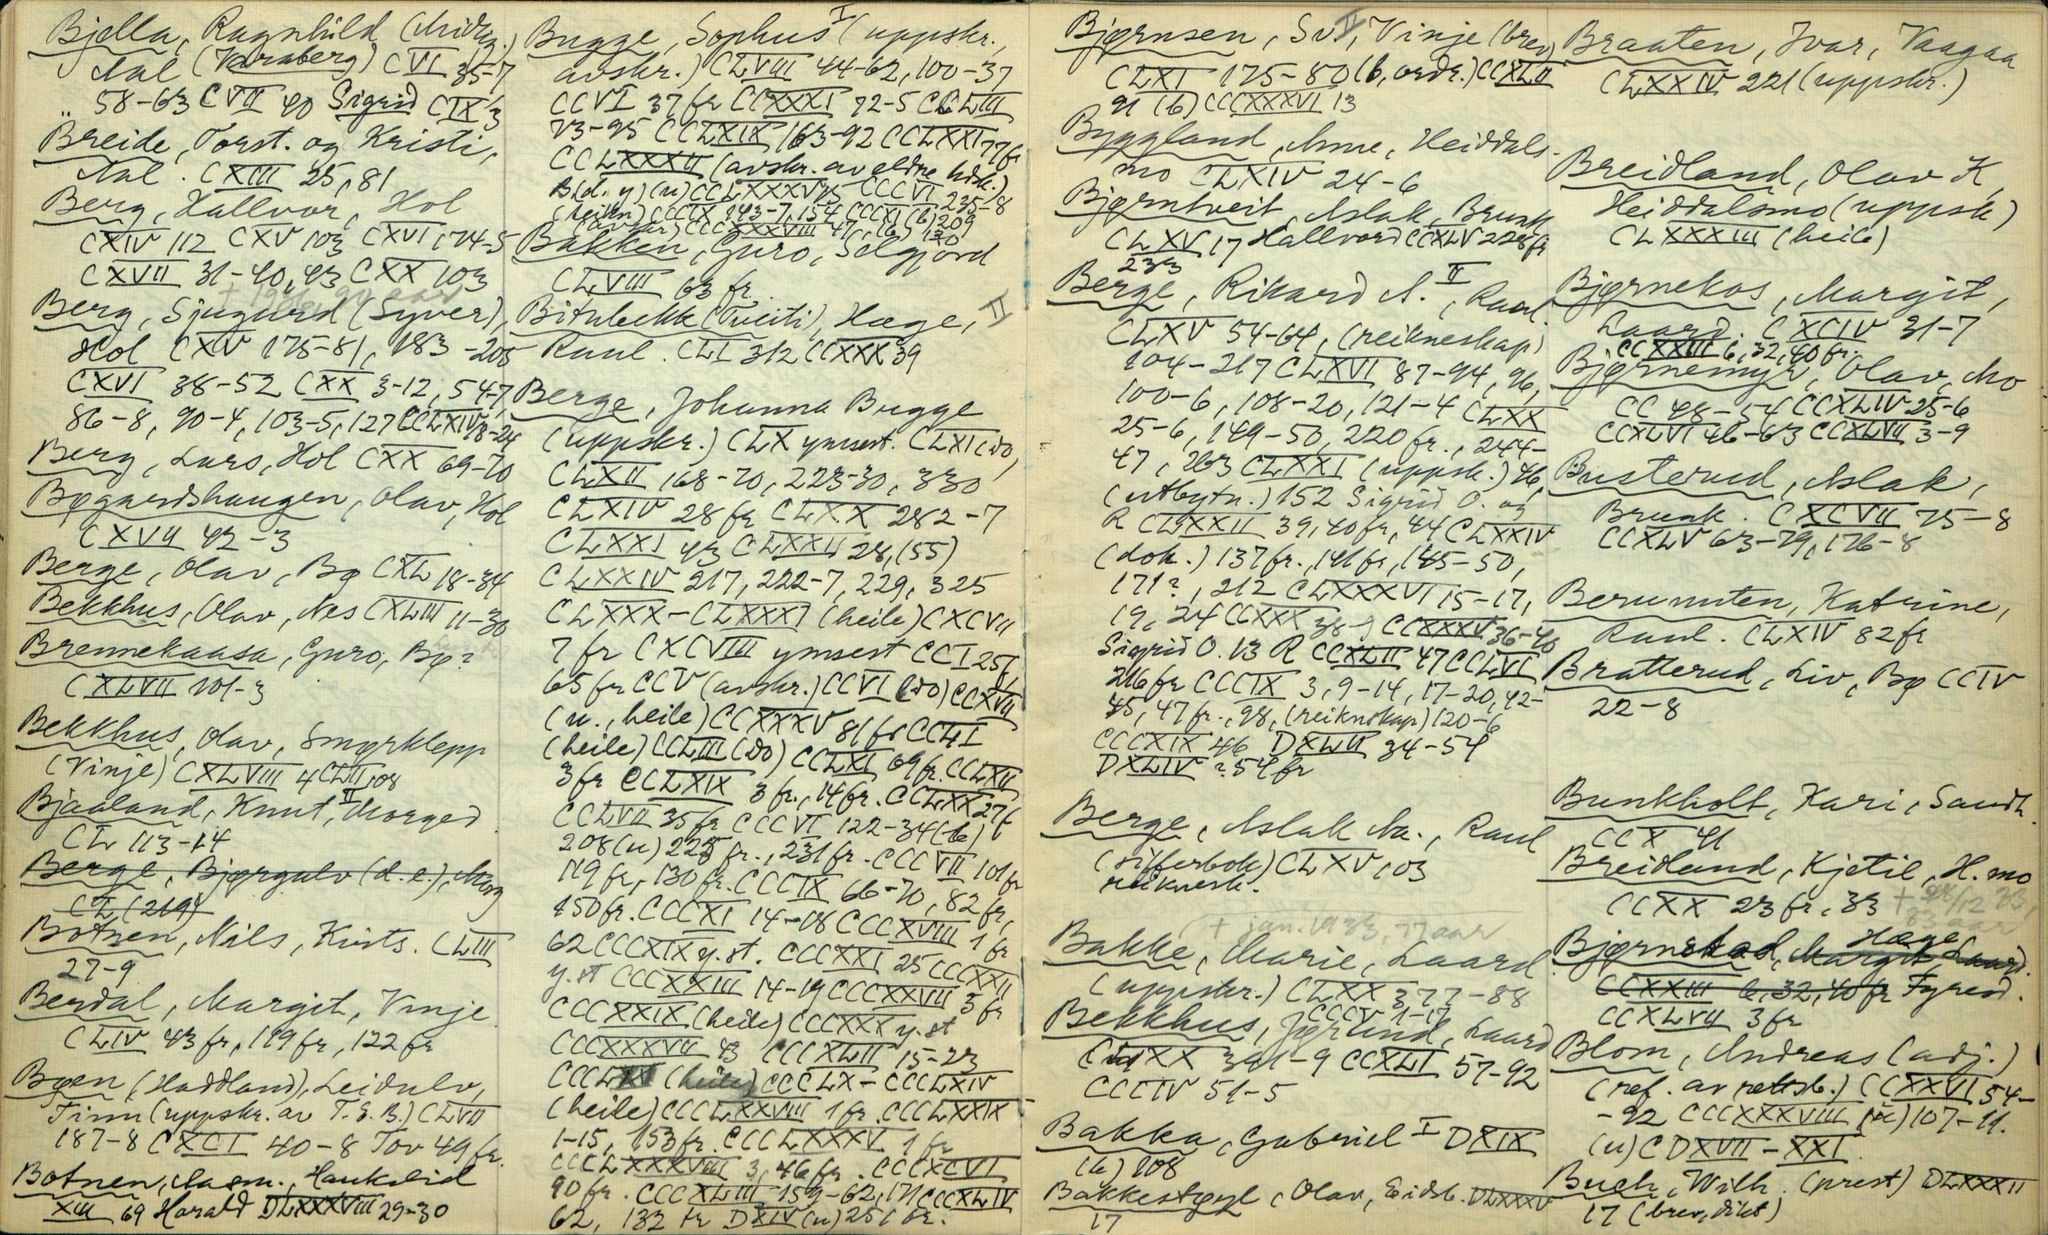 Bjella, Ragnhild
Aal (Varaberg) CVI 35-7
58-63 CVII 40 Sigrid CIX 3
Breide, Torst. og Kristi,
Aal. CXIII 25, 81
Berg, Hallvor, Hol
CXIV 112 CXV 103 CXVI 174-5
CXVII 31-40, 43 CXX 103
Berg, Sjugurd (Syver),
Hol CXV 175-81, 183-205
CXVI 38-52 CXX 3-12, 54-7,
86-8, 90-4, 103-5, 127 CCLXIV 18-24
Berg, Lars, Hol CXX 69-70
Bøgaardshaugen, Olav, Hol
CXVII 42-3
Berge, Olav, Bø CXL 18-34
Bekkhus, Olav, Nes CXLIII 11-30
Brennekaasa, Guro, Bø?
CXLVII 101-3
Bekkhus, Olav, Smyrklepp
(Vinje) CXLVIII 4 CLII 108
Bjaaland, Knut, II Morged
CL 113-14
Berge, Bjørgulv (d.e.), Morg
CL (219)
Botnen, Nils, Kvits. CLIII
27-9
Berdal, Margit, Vinje
CLIV 43 fr, 119 fr, 122 fr
Bøen (Haddland), Leidulv,
Tinn (uppskr. av T.E.B.) CLVII
187-8 CXCI 40-8 Tov 49 fr.
Botnen, Aasm., Haukelid
XIII 69 Harald DLXXXVIII 29-30
Bugge, Sophus I (uppskr.,
avskr.) CLVIII 44-62, 100-37
CCVI 37 fr CCXXXI 72-5 CCLIII
73-95 CCLXIX 163-92 CCLXXI 77 fr
CCLXXXII (avskr. av eldre hdsk.)
Bakken, Guro, Selgjord
CLVIII 63 fr.
Bitubekk (Tveiti), Hæge, II
Raul. CLI 312 CCXXX 39
Berge, Johanna Bugge
(uppskr.) CLX ymsest. CLXI (do)
CLXII 168-70, 223-30, 330
CLXIV 28 fr CLXX 282-7
CLXXI 43 CLXXII 28, (55)
CLXXIV 217, 222-7, 229, 325
CLXXX-CLXXXI (heile) CXCVII
7 fr CXCVIII ymsest CCI 25 f,
65 fr CCV (avskr.) CCVI (do) CCXVII
(u., heile) CCXXXV 81 fr CCLI
(heile) CCLIII (do) CCLXI 69 fr. CCLXII
3 fr CCLXIX 3 fr., 14 fr. CCLXX 27 f
CCLVII 35 fr CCCVI 122-34 (b)
208 (u) 225 fr., 231 fr. CCCVII 101 fr
119 fr, 130 fr. CCCIX 66-70, 82 fr,
150 fr. CCCXI 14-18 CCCXVIII 1 fr
62 CCCXIX y. st. CCCXXI 25 CCCXXII
y. st CCCXXIII 14-19 CCCXXVIII 3 fr
CCCXXIX (heile) CCCXXX y. st
CCCXXXVII 43 CCCXLII 15-23
(heile) CCCLX-CCCLXIV
(heile) CCCLXXVIII 1 fr. CCCLXXIX
1-15, 153 fr. CCCLXXXV 1 fr
CCCLXXXVIII 3, 46 fr. CCCXCVI
90 fr. CCCXLIII 159-62, 171 CCCXLIV
62, 132 fr DXIV (u) 251 fr.
Bjørnsen, Sv. II, Vinje (brev)
CLXI 175-80 (b, ordr.) CCXLII
91 (b) CCCXXXVI 13
Byggland, Anne, Heiddals-
mo CLXIV 24-6
Bjørntveit, Aslak, Brunk
CLXV 17 Hallvord CCXLV 228 fr
233
Berge, Rikard A. II, Raul
CLXV 54-64, (reikneskap)
104-217 CLXVI 87-94, 96,
100-6, 108-20, 121-4 CLXX
25-6, 149-50, 220 fr., 244-
47, 263 CLXXI (uppsk.) 46,
(utbytn.) 152 Sigrid O. og
R CLXXII 39, 40 fr, 44 CLXXIV
(dok.) 137 fr., 141 fr, 145-50,
171?, 212 CLXXXVI 15-17,
19, 24 CCXXX 38-9 CCXXXV 36-40
Sigrid O. 13 R CCXLII 47 CCLVI
216 fr CCCIX 3, 9-14, 17-20, 42-
45, 47 fr., 98, (reiknskap) 120-6
CCCXIX 46 DXLII 34-54
DXLIV ? 54 fr
Berge, Aslak Aa., Raul
(sifferbok) CLXV 103
reiknesk.
+ jan. 1933, 77 aar
Bakke, Marie, Laard
(uppskr.) CLXX 377-88
CCCV 1-17
Bekkhus, Jørund, Laard
CLXX 391-9 CCXLI 57-92
CCCIV 51-5
Bakka, Gabriel I DXIX
(b) 108
Bakkestøyl, Olav, Eidsb. DLXXXV
17
Braaten, Ivar, Vaagaa
CLXXIV 221 (uppskr.)
Breidland, Olav K,
Heiddalsmo (uppsk)
CLXXXIII (heile)
Bjørnekos, Margit,
Laard. CXCIV 31-7
CCXXIII 6, 32, 40 fr
Bjørnemyr, Olav, Mo
CC 48-54 CCXLIV 25-6
CCXLVI 46-63 CCXLVII 3-9
Busterud, Aslak,
Brunk. CXCVII 75-8
CCXLV 63-79, 176-8
Berunuten, Katrine,
Raul. CLXIV 82 fr
Bratterud, Liv, Bø CCIV
22-8
Bunkholt, Kari, Sandh.
CCX 41
Breidland, Kjetil, H.mo
CCXX 23 fr, 33
Hæge
Bjørnstad, Margit Laard.
CCXXIII 6, 32, 40 fr Fyresd.
CCXLVII 3 fr
Blom, Andreas (adj.)
(ref. av rettsb.) CCXXVI 54-
-92 CCCXXXVIII (u) 107-11.
(u) CDXVII-XXI
Buch, Wilh. (prest) DLXXXII
17 (brev, dikt)